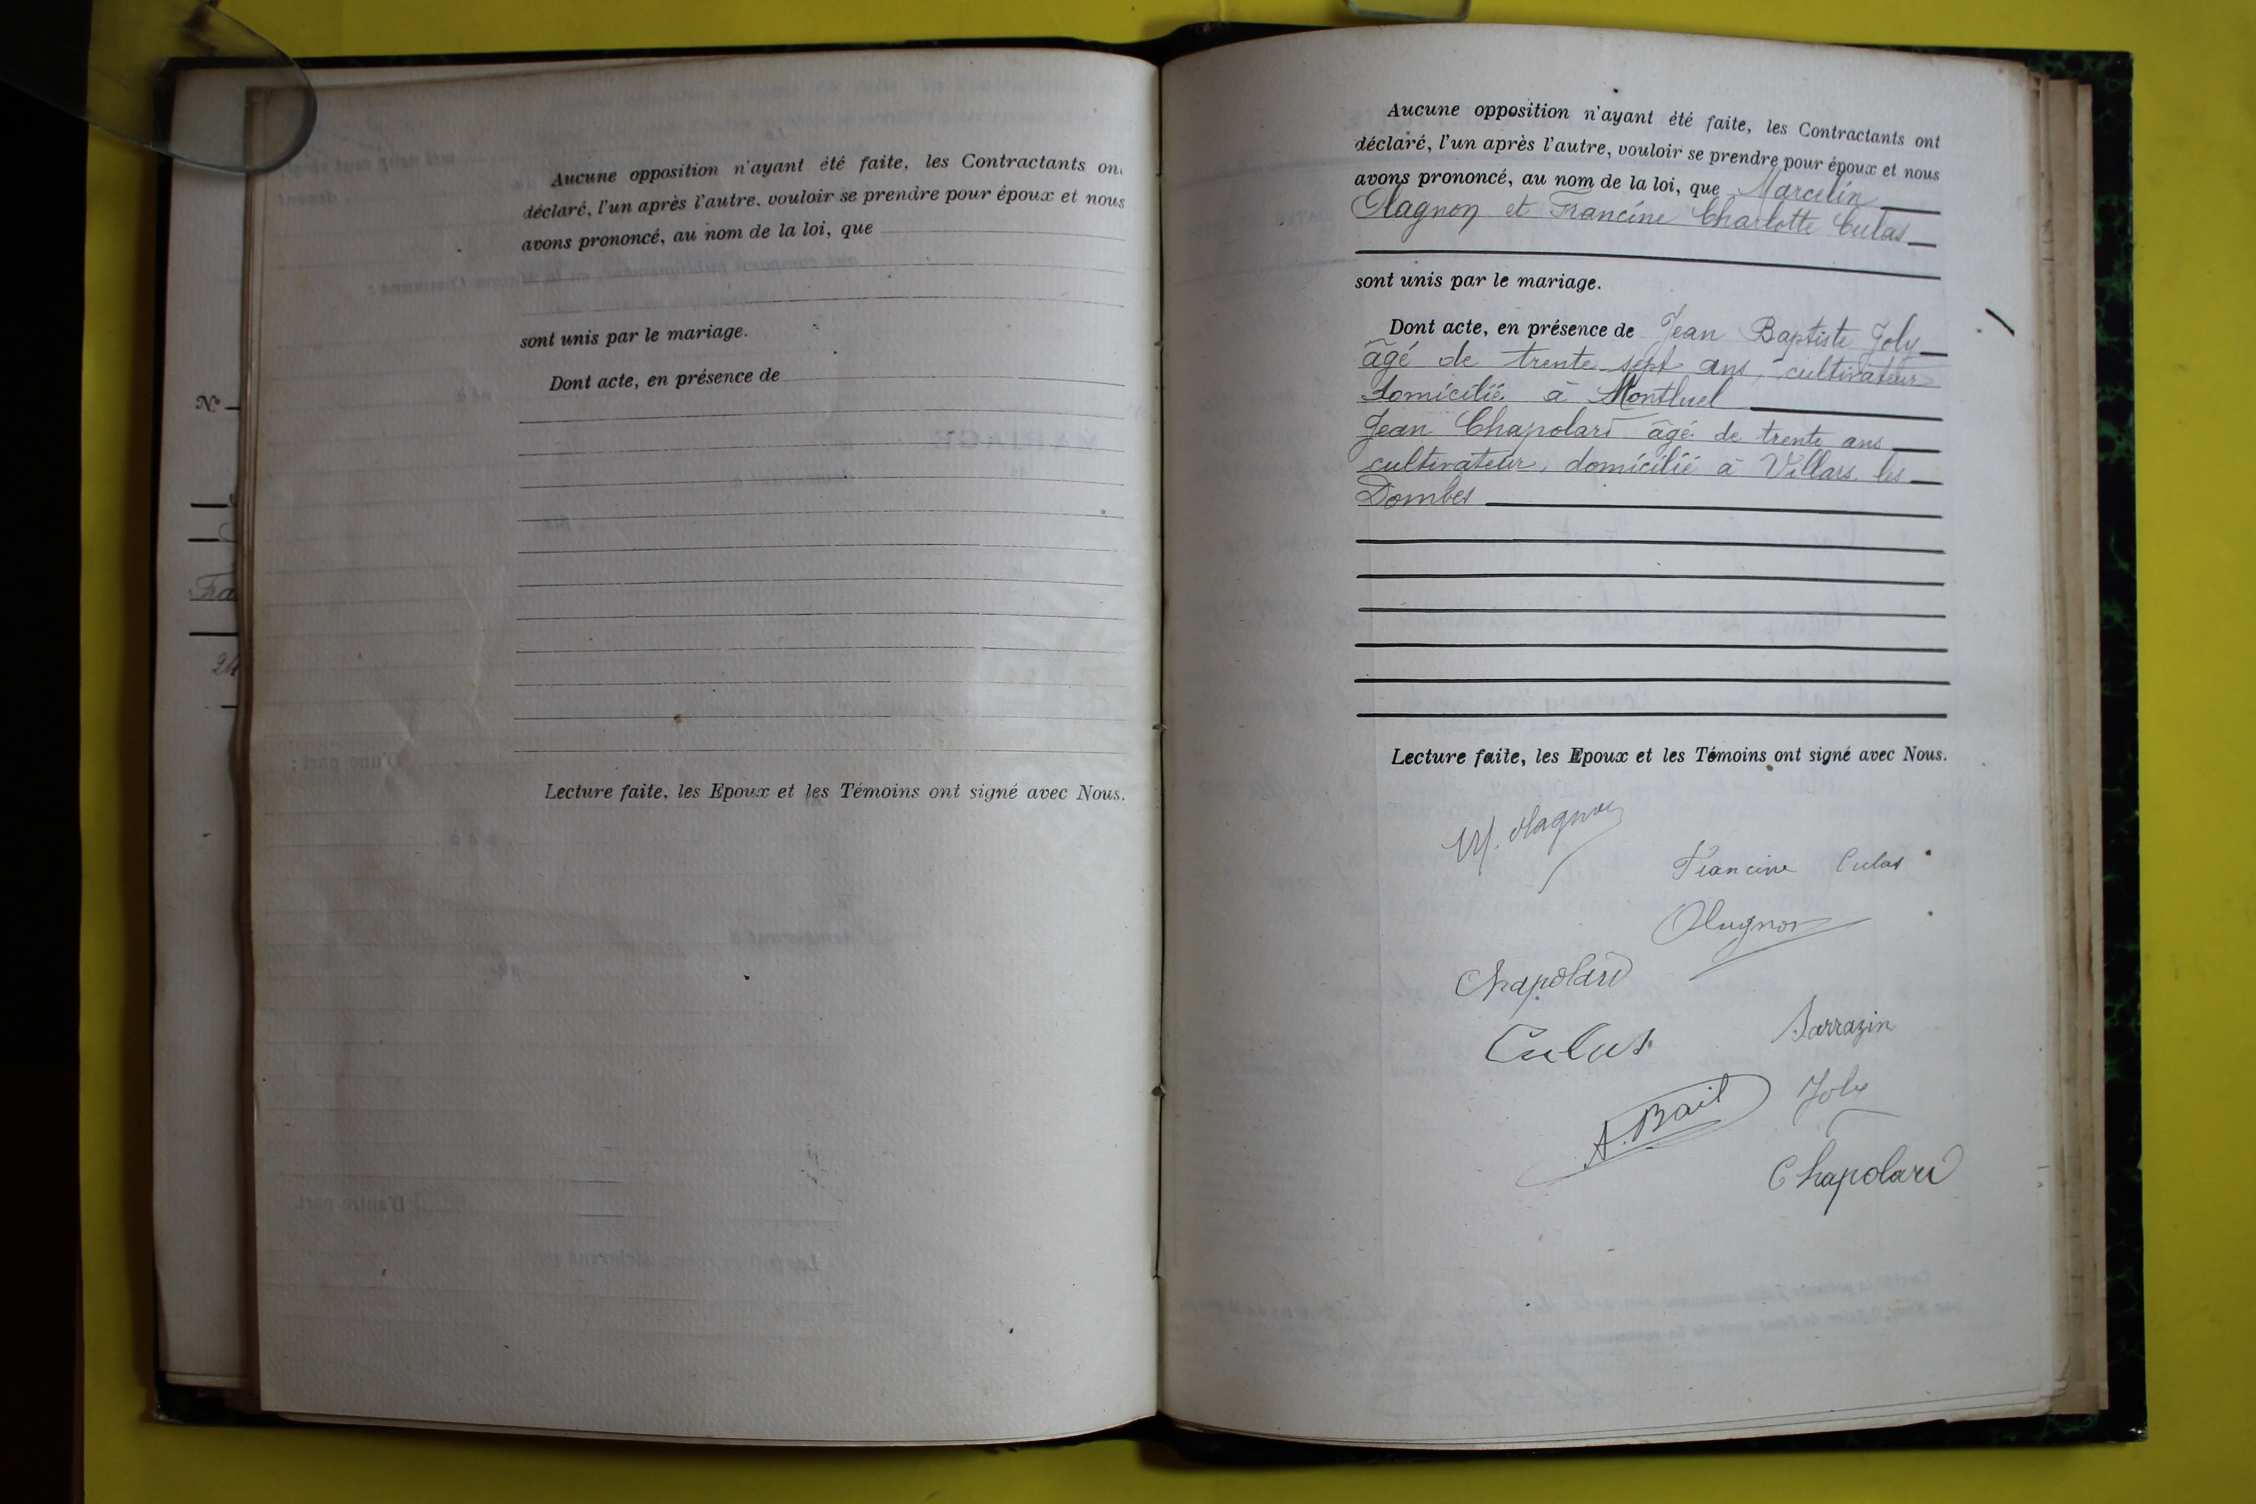 N°
Fra
24
Aucune opposition n'ayant été faite, les Contractants on
déclaré, l'un après l'autre, vouloir se prendre pour époux et nous
avons prononcé, au nom de la loi, que
sont unis par le mariage.
Dont acte, en présence de
Lecture faite, les Epoux et les Témoins ont signé avec Nous.
Aucune opposition n'ayant été faite, les Contractants ont
déclaré, l'un après l'autre, vouloir se prendre pour époux et nous
avons prononcé, au nom de la loi, que Marcelin
Olagnon et Francine Charlotte Culas
sont unis par le mariage.
Dont acte, en présence de Jean Baptiste Joly
âgé de trente sept ans, cultivateur
domicilié à Montluel
Jean Chapolard âgé de trente ans
cultivateur, domicilié à Villars les
Dombes
Lecture faite, les Epoux et les Témoins ont signé avec Nous.
M. Olagnon
Francine Culas
Olagnon
Chapolard
Sarrazin
Culas
Joly
A. Bail
Chapolard